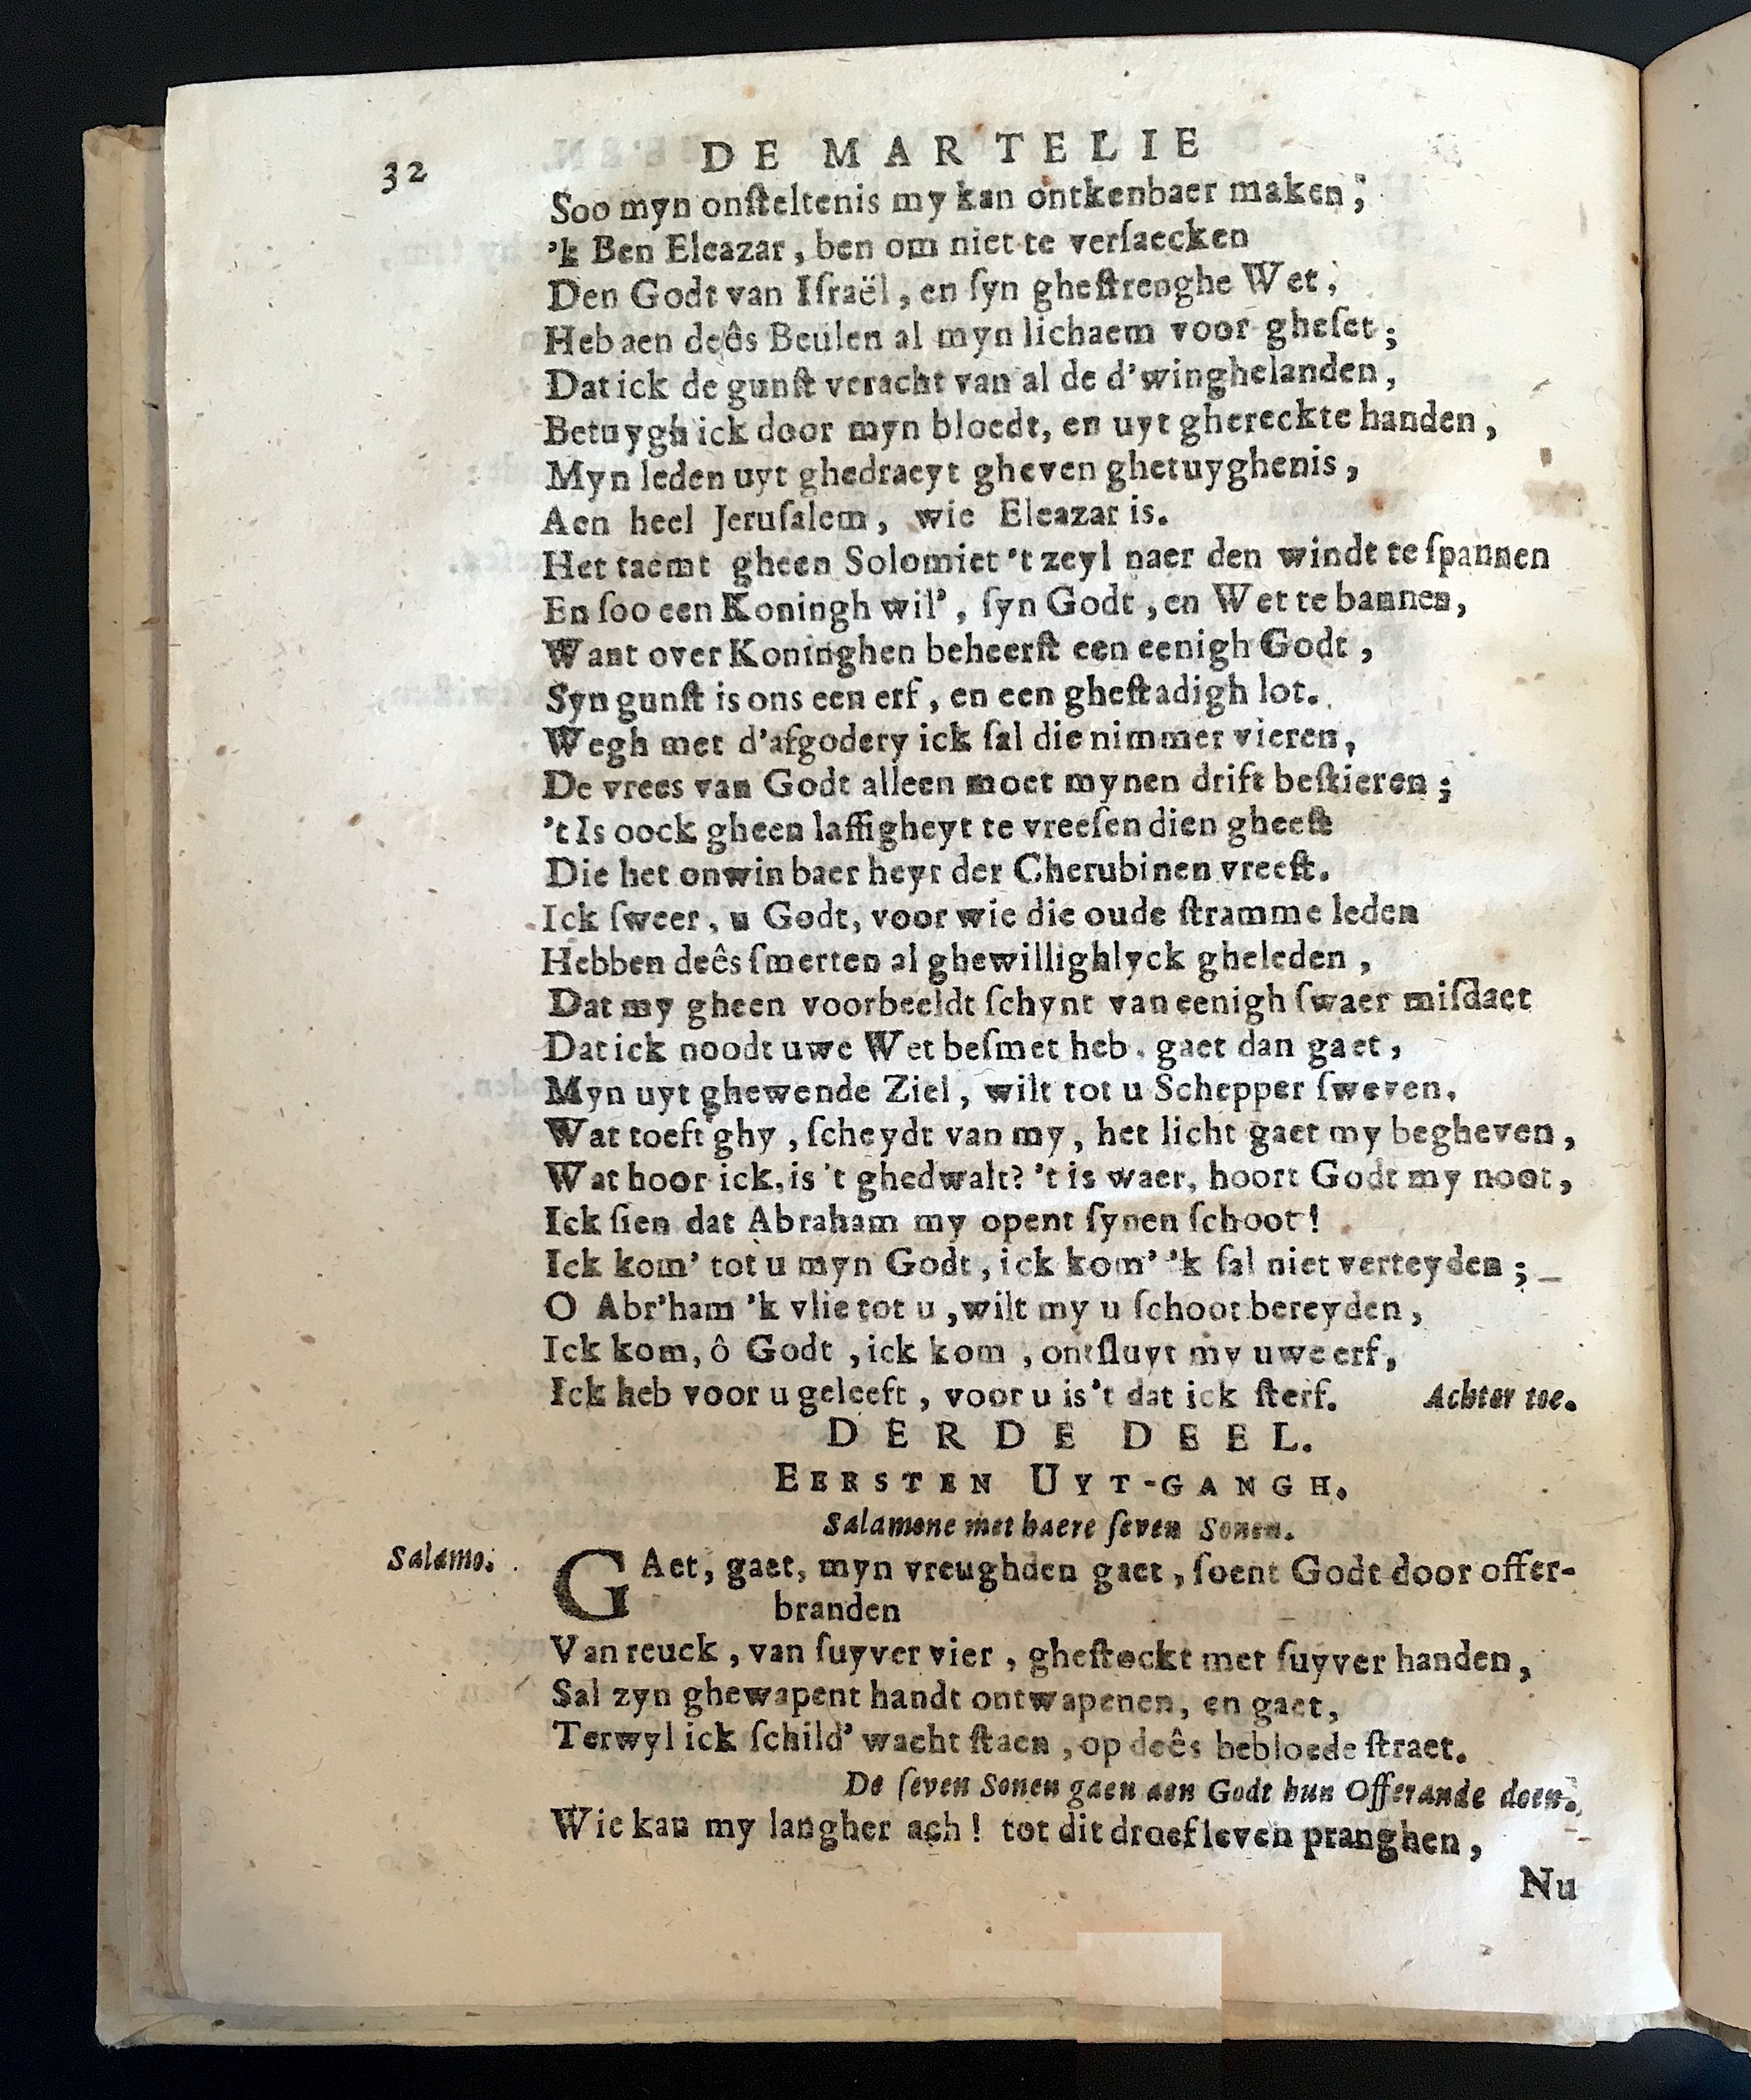 32 DE MARTELIE
Soo myn onſteltenis my kan ontkenbaer maken,
'k Ben Eleazar, ben om niet te verſaecken
Den Godt van Iſraël, en ſyn gheſtrenghe Wet,
Heb aen deês Beulen al myn lichaem voor gheſet;
Dat ick de gunſt veracht van al de d'winghelanden,
Betuygh ick door myn bloedt, en uyt ghereckte handen,
Myn leden uyt ghedraeyt gheven ghetuyghenis,
Aen heel Jeruſalem, wie Eleazar is.
Het taemt gheen Solomiet 't zeyl naer den windt te ſpannen
En ſoo een Koningh wil', ſyn Godt, en Wet te bannen,
Want over Koninghen beheerſt een eenigh Godt,
Syn gunſt is ons een erf, en een gheſtadigh lot.
Wegh met d'afgodery ick ſal die nimmer vieren,
De vrees van Godt alleen moet mynen drift beſtieren;
't Is oock gheen laffigheyt te vreeſen dien gheeſt
Die het onwinbaer heyr der Cherubinen vreeſt.
Ick ſweer, u Godt, voor wie die oude ſtramme leden
Hebben deês ſmerten al ghewillighlyck gheleden,
Dat my gheen voorbeeldt ſchynt van eenigh ſwaer miſdaet
Dat ick noodt uwe Wet beſmet heb. gaet dan gaet,
Myn uyt ghewende Ziel, wilt tot u Schepper ſweven.
Wat toeft ghy, ſcheydt van my, het licht gaet my begheven,
Wat hoor ick, is 't ghedwalt? 't is waer, hoort Godt my noot,
Ick ſien dat Abraham my opent ſynen ſchoot!
Ick kom' tot u myn Godt, ick kom' 'k ſal niet verteyden;
O Abr'ham 'k vlie tot u, wilt my u ſchoot bereyden,
Ick kom, ô Godt, ick kom, ontſluyt my uwe erf,
Ick heb voor u geleeft, voor u is't dat ick ſterf. Achter toe.
DERDE DEEL.
EERSTEN UYT-GANGH.
Salamone met haere ſeven Sonen.
Salamo. GAet, gaet, myn vreughden gaet, ſoent Godt door offer-
branden
Van reuck, van ſuyver vier, gheſtockt met ſuyver handen,
Sal zyn ghewapent handt ontwapenen, en gaet,
Terwyl ick ſchild' wacht ſtaen, op deês bebloede ſtraet.
De ſeven Sonen gaen aen Godt hun Offerande doen.
Wie kan my langher ach! tot dit droef leven pranghen,
Nu